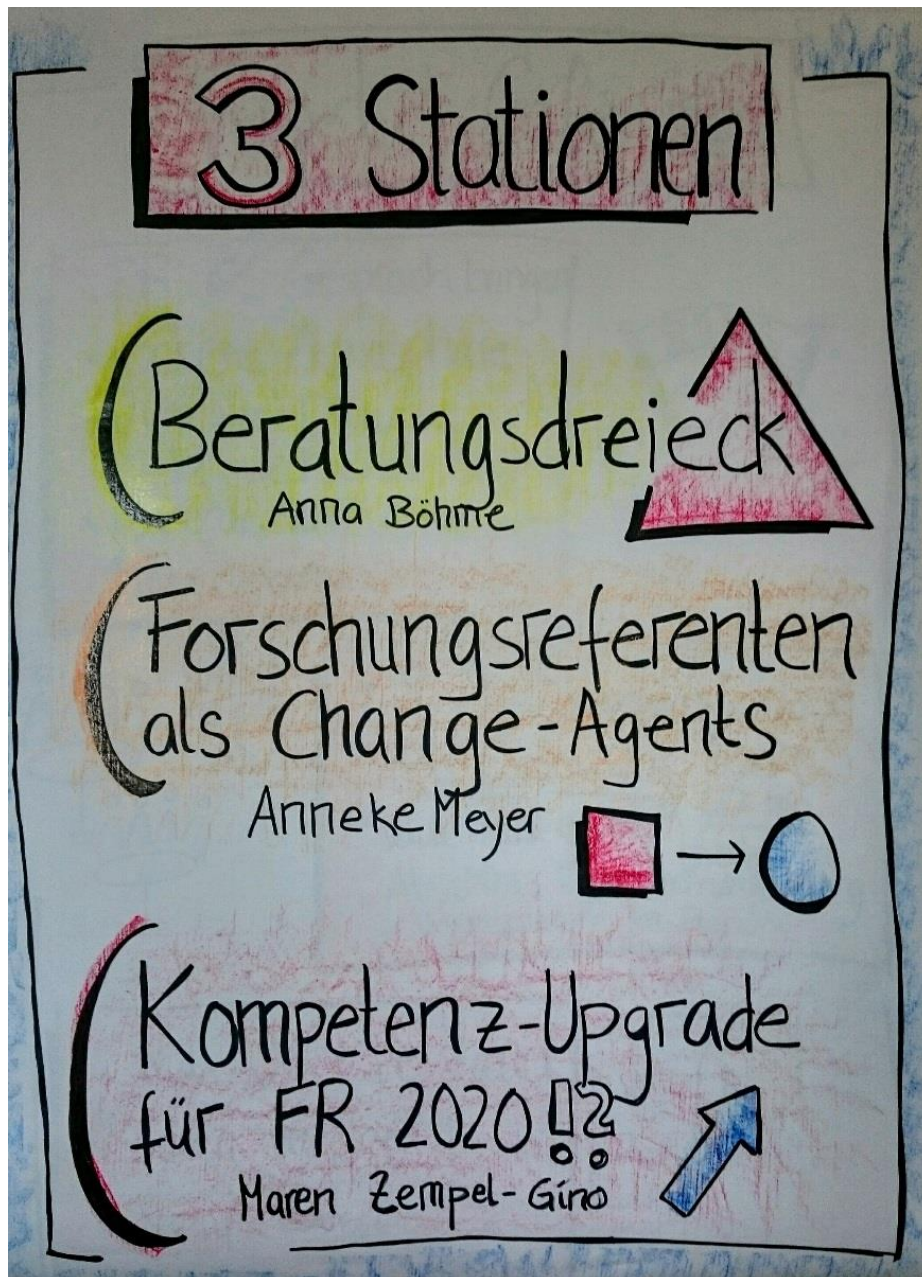 3 Stationen
Beratungsdreieck
Anna Böhme
Forschungsreferenten
als Change-Agents
Anneke Meyer
Kompetenz-Upgrade
für FR 2020!?
Maren Zempel-Gino